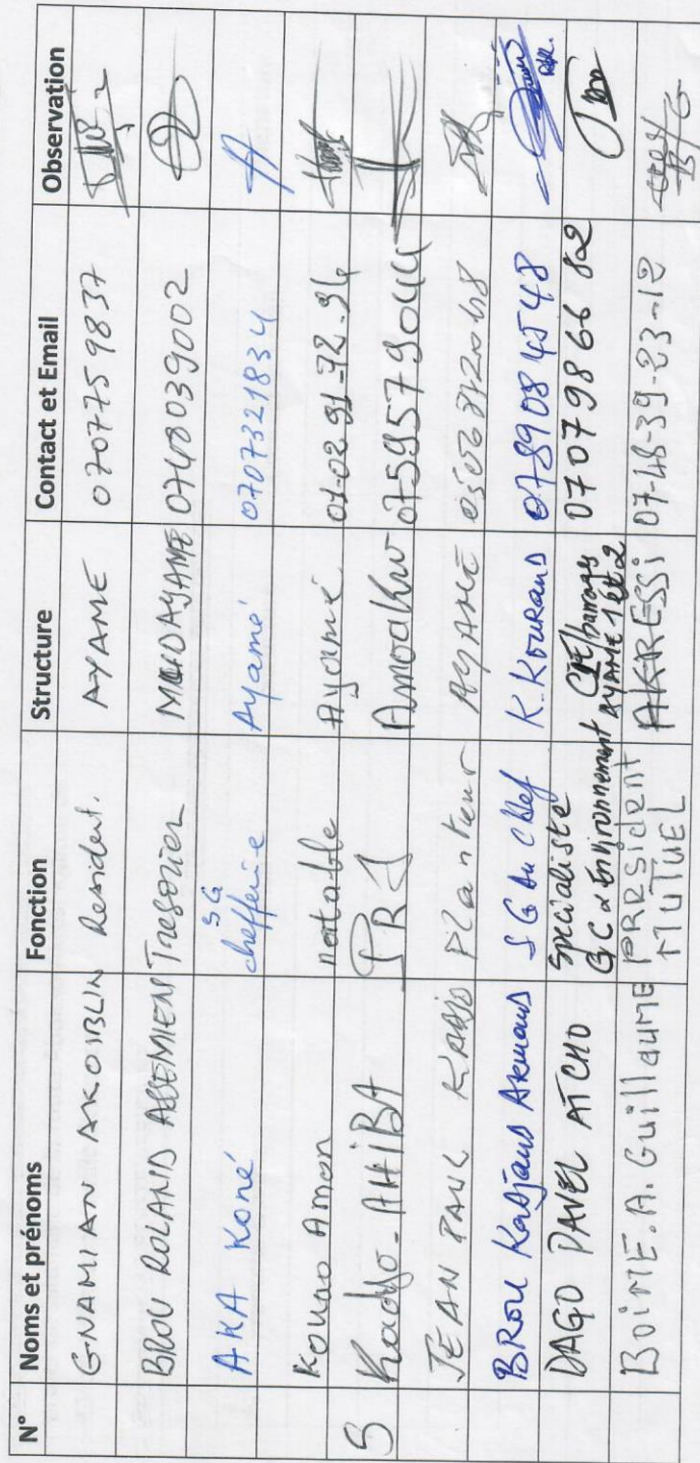 N° Noms et prénoms Fonction Structure Contact et Email Observation
GNAMIAN AKOIBLIN Resident. AYAME 0707759837
BROU ROLAND ASSEMIEN Tresorier AYAME 0748039002
AKA Koné SG chefferie Ayamé 0707321834
Kouao Amon notable Ayamé 01-02-91-72-96
5 Kadjo-AHIBA Amoakro 0759579044
JEAN PAUL KADJO Planteur AYAME
BROU Kadjaud Armand SG du Chef K. Kouraud 0789084548
DAGO PAVEL ATCHO Specialiste GC d Environnement CIE/barrages AYAME 1 et 2 0707986682
BOIME. A. Guillaume PRESident MUTUEL AKRESSI 07-48-39-23-12